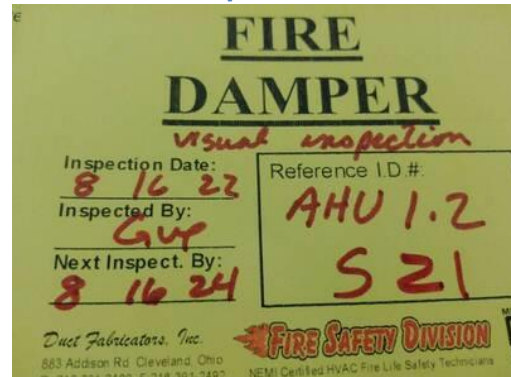 FIRE
DAMPER
visual inspection
Inspection Date:
8 16 22
Inspected By:
Next Inspect. By:
8 16 24
Reference I.D.#:
AHU 1.2
S 21
Duct Fabricators, Inc.
883 Addison Rd. Cleveland, Ohio
FIRE SAFETY DIVISION
NEMI Certified HVAC Fire Life Safety Technicians